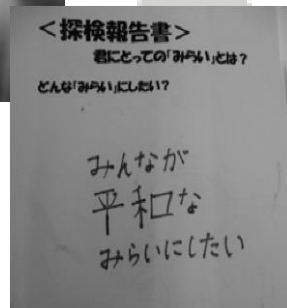 ＜探検報告書＞
君にとっての「みらい」とは？
どんな「みらい」にしたい？
みんなが
平和な
みらいにしたい